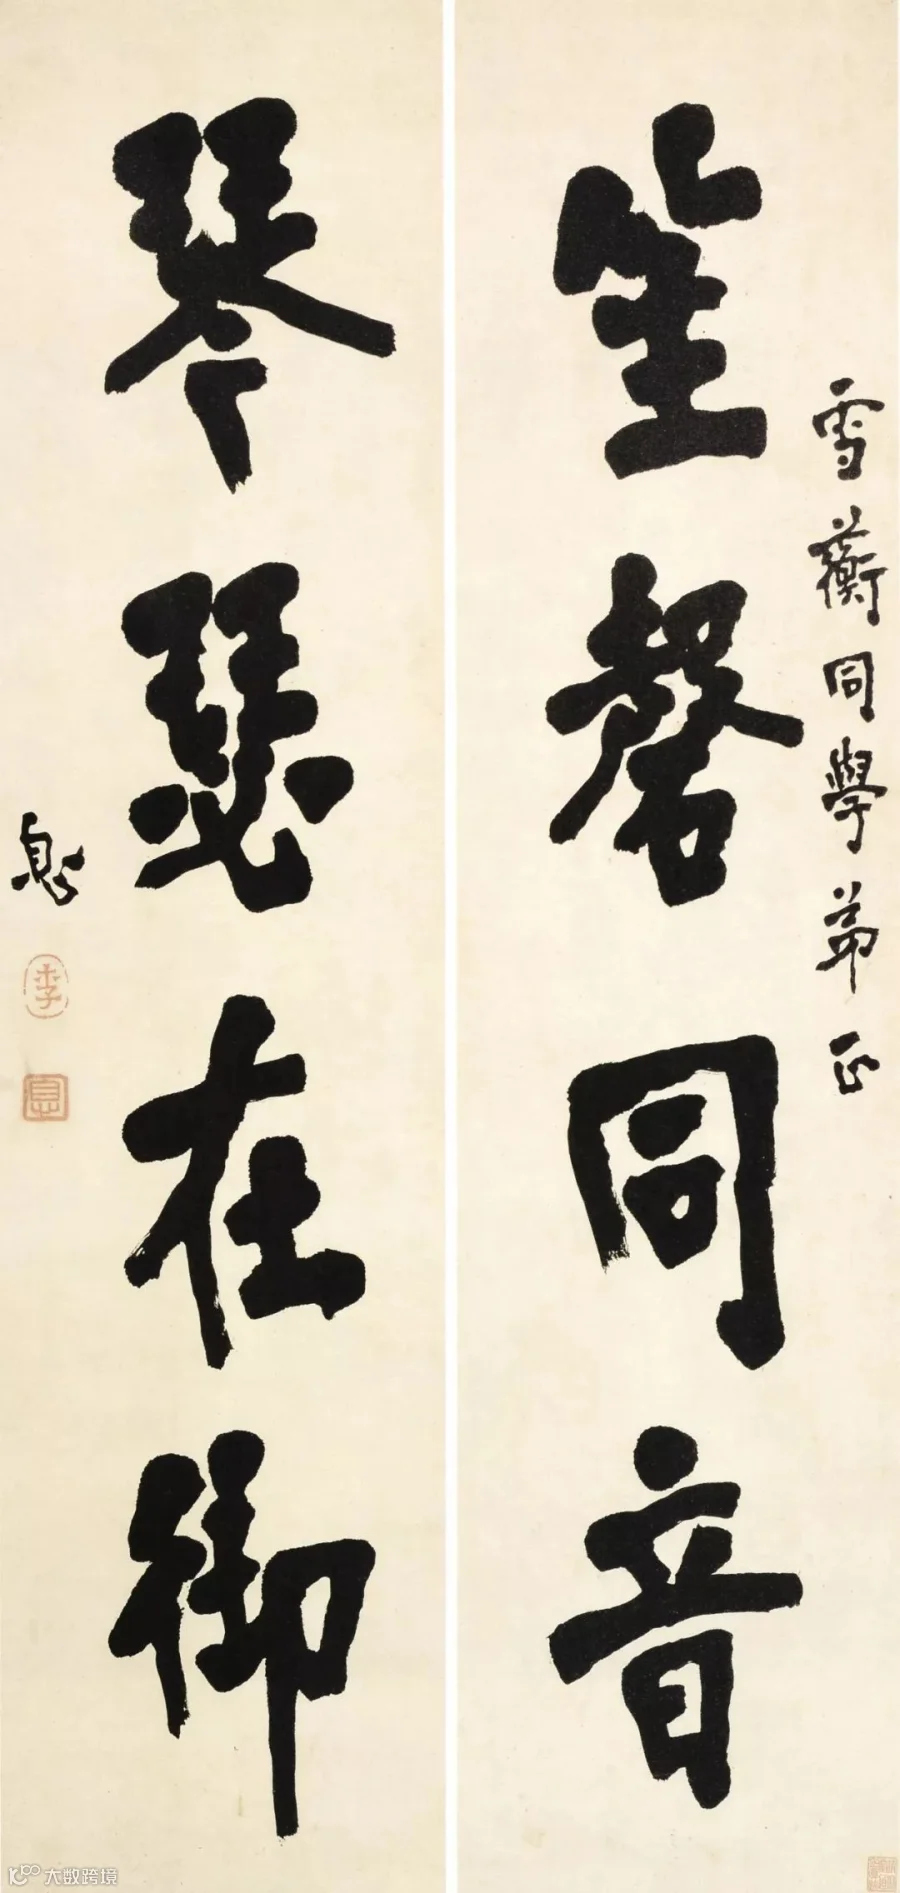 雪蘅同學弟正
笙磬同音
琴瑟在御
息
李
息
大数跨境